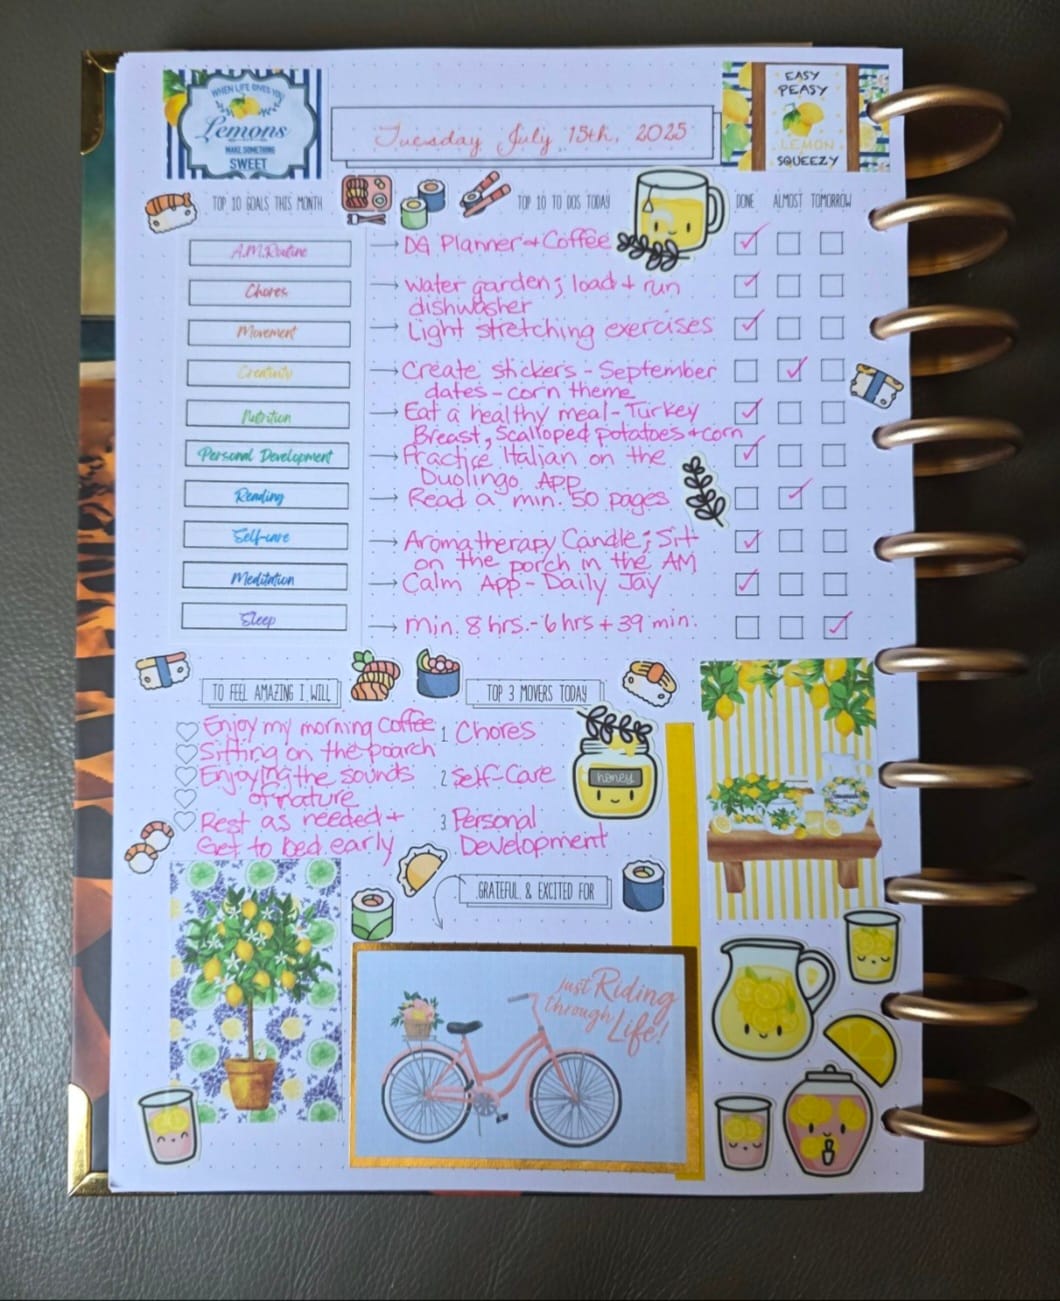 WHEN LIFE GIVES YOU
Lemons
MAKE SOMETHING
SWEET
Tuesday July 15th, 2025
EASY
PEASY
LEMON
SQUEEZY
TOP 10 GOALS THIS MONTH
TOP 10 TO DOS TODAY
DONE ALMOST TOMORROW
A.M. Routine
→ DG Planner + Coffee
Chores
→ Water garden; load + run
dishwasher
Movement
→ Light stretching exercises
Creativity
→ Create stickers - September
dates - corn theme
Nutrition
→ Eat a healthy meal - Turkey
Breast, Scalloped potatoes + corn
Personal Development
→ Practice Italian on the
Duolingo App
Reading
→ Read a min. 50 pages
Self-care
→ Aromatherapy Candle; Sit
on the porch in the AM
Meditation
→ Calm App - Daily Jay
Sleep
→ Min. 8 hrs. - 6 hrs + 39 min.
TO FEEL AMAZING I WILL
Enjoy my morning coffee
Sitting on the poarch
Enjoying the sounds
of nature
Rest as needed +
Get to bed early
TOP 3 MOVERS TODAY
1 Chores
2 Self-Care
3 Personal
Development
honey
GRATEFUL & EXCITED FOR
just Riding
through Life!